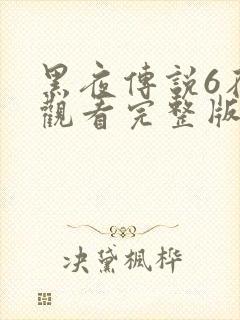 黑夜傳説6在
觀看完整版
决黛楓桦